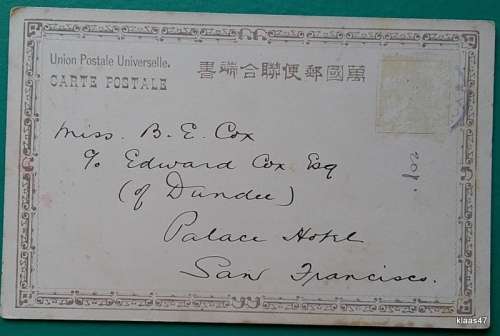 Union Postale Universelle.
CARTE POSTALE
萬國郵便聯合端書
Miss. B. E. Cox
℅ Edward Cox Esq
(of Dundee)
Palace Hotel
San Francisco.
klaas47